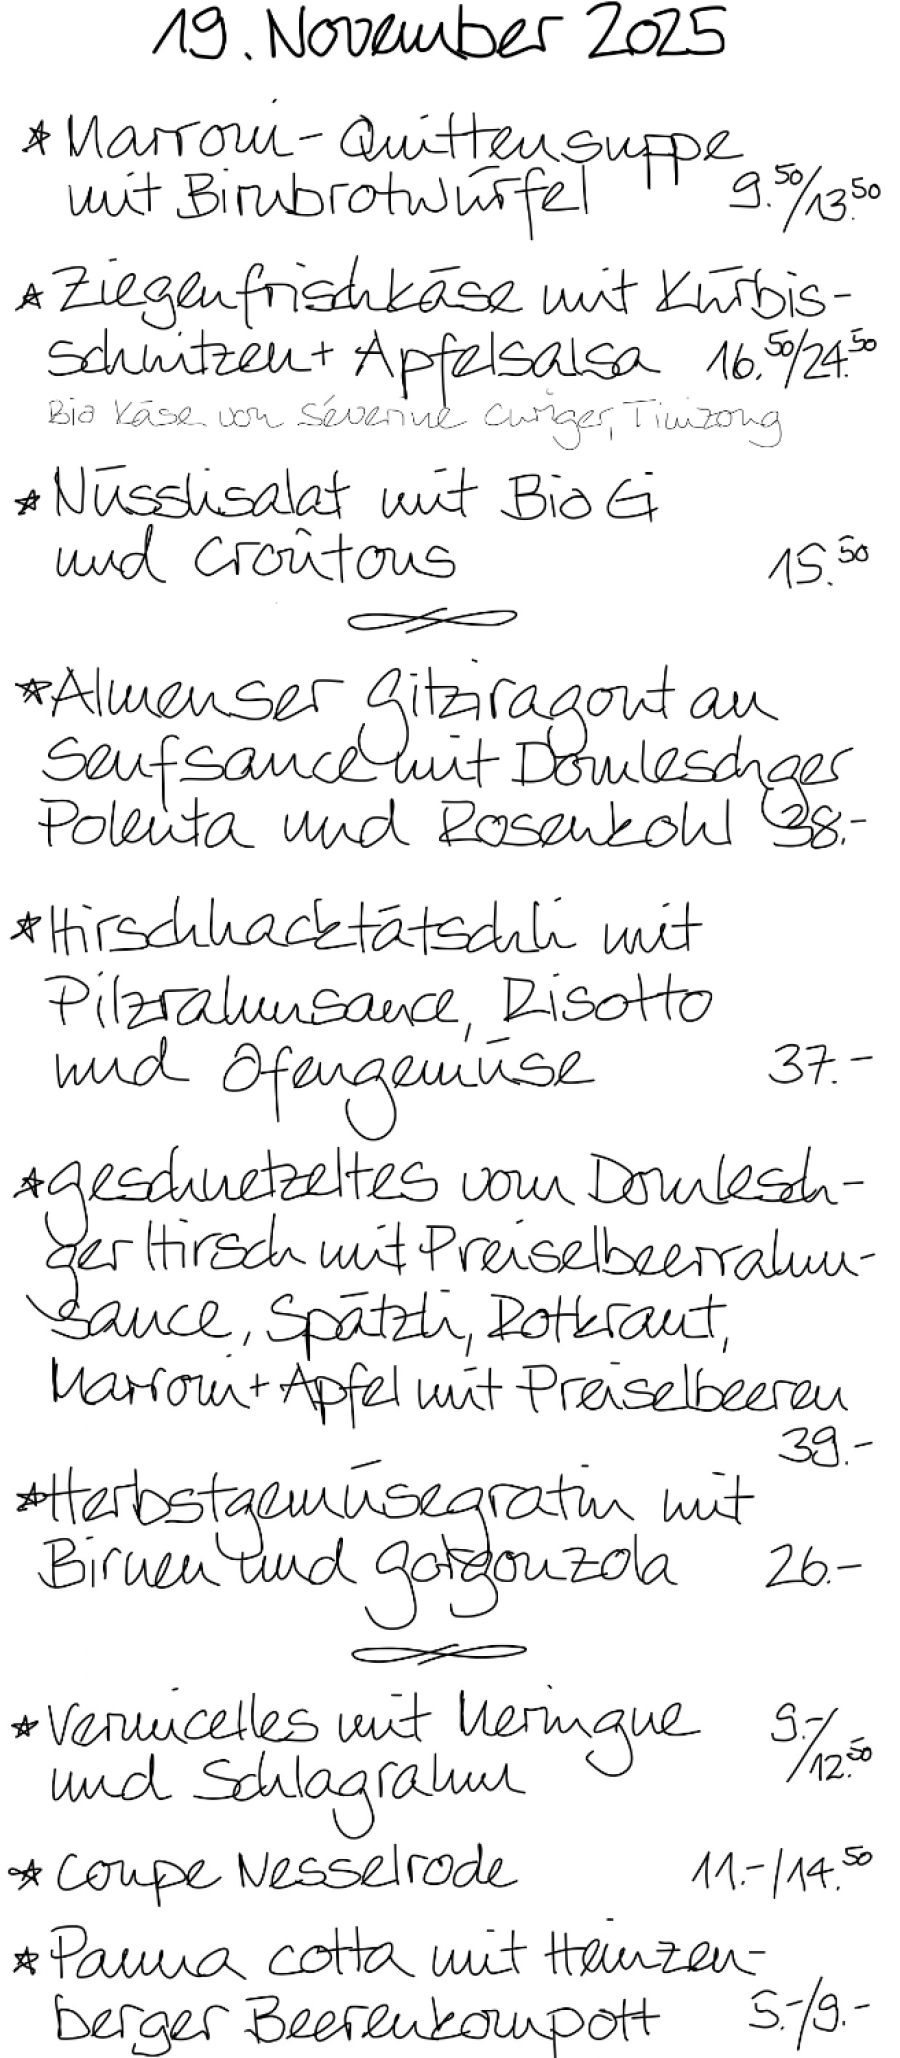 19. November 2025
* Marroni-Quittensuppe
mit Birnbrotwürfel 9.50/13.50
* Ziegenfrischkäse mit Kürbis-
schnitzen + Apfelsalsa 16.50/24.50
Bio Käse von Séverine Curiger, Tumzong
* Nüsslisalat mit Bio Ei
und Croûtons 15.50
* Almenser Gitziragout an
Senfsauce mit Domleschger
Polenta und Rosenkohl 38.-
* Hirschhacktätschli mit
Pilzrahmsauce, Risotto
und Ofengemüse 37.-
* Geschnetzeltes vom Domlesch-
ger Hirsch mit Preiselbeerrahm-
sauce, Spätzli, Rotkraut,
Marroni + Apfel mit Preiselbeeren
39.-
* Herbstgemüsegratin mit
Birnen und Gorgonzola 26.-
* Vermicelles mit Meringue 9.-/12.50
und Schlagrahm
* Coupe Nesselrode 11.-/14.50
* Panna cotta mit Heinzen-
berger Beerenkompott 5.-/9.-